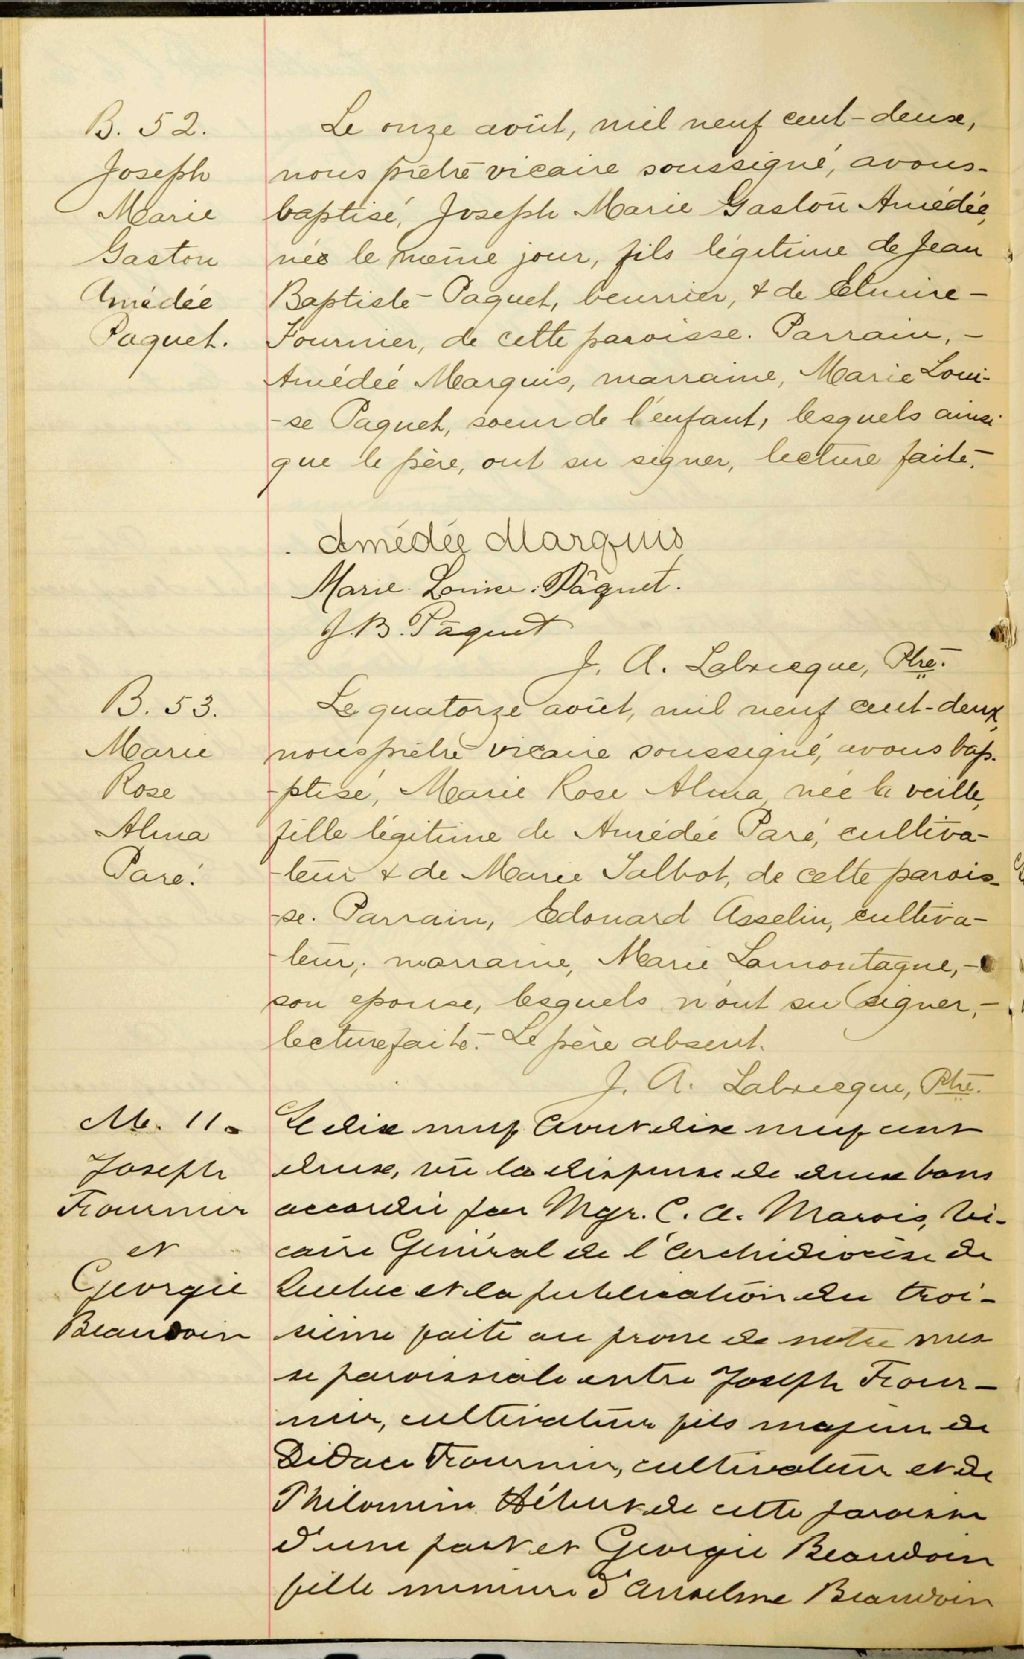 B. 52.
Joseph
Marie
Gaston
Amédée
Paquet.
Le onze août, mil neuf cent-deux,
nous prêtre vicaire soussigné, avons-
baptisé, Joseph Marie Gaston Amédée,
née le même jour, fils légitime de Jean
Baptiste Paquet, beurrier, & de Elmire-
Fournier, de cette paroisse. Parrain, -
Amédée Marquis, marraine, Marie Loui-
-se Paquet, soeur de l'enfant, lesquels ainsi
que le père, ont su signer, lecture faite.-
Amédée Marquis
Marie Louise Pâquet.
J.B. Pâquet
J. A. Labrecque, Ptre.
B. 53.
Marie
Rose
Alma
Paré.
Le quatorze août, mil neuf cent-deux,
nous prêtre vicaire soussigné, avons bap-
-ptisé, Marie Rose Alma, née la veille,
fille légitime de Amédée Paré, cultiva-
-teur & de Marie Talbot, de cette parois-
-se. Parrain, Edouard Asselin, cultiva-
-teur; marraine, Marie Lamontagne, -
son épouse, lesquels n'ont su signer, -
lecture faite.- Le père absent.
J. A. Labrecque, Ptre.
M. 11.
Joseph
Fournier
et
Georgie
Beaudoin
Le dix neuf Aout dix neuf cent
deux, vu la dispense de deux bans
accordée par Mgr. C. A. Marois, Vi-
caire Général de l'Archidiocèse de
Quebec et la publication du troi-
sième faite au prone de notre mes
se paroissiale entre Joseph Four-
nier, cultivateur fils majeur de
Didace Fournier, cultivateur et de
Philomène Hébert de cette paroisse
d'une part et Georgie Beaudoin
fille mineure d'Anselme Beaudoin